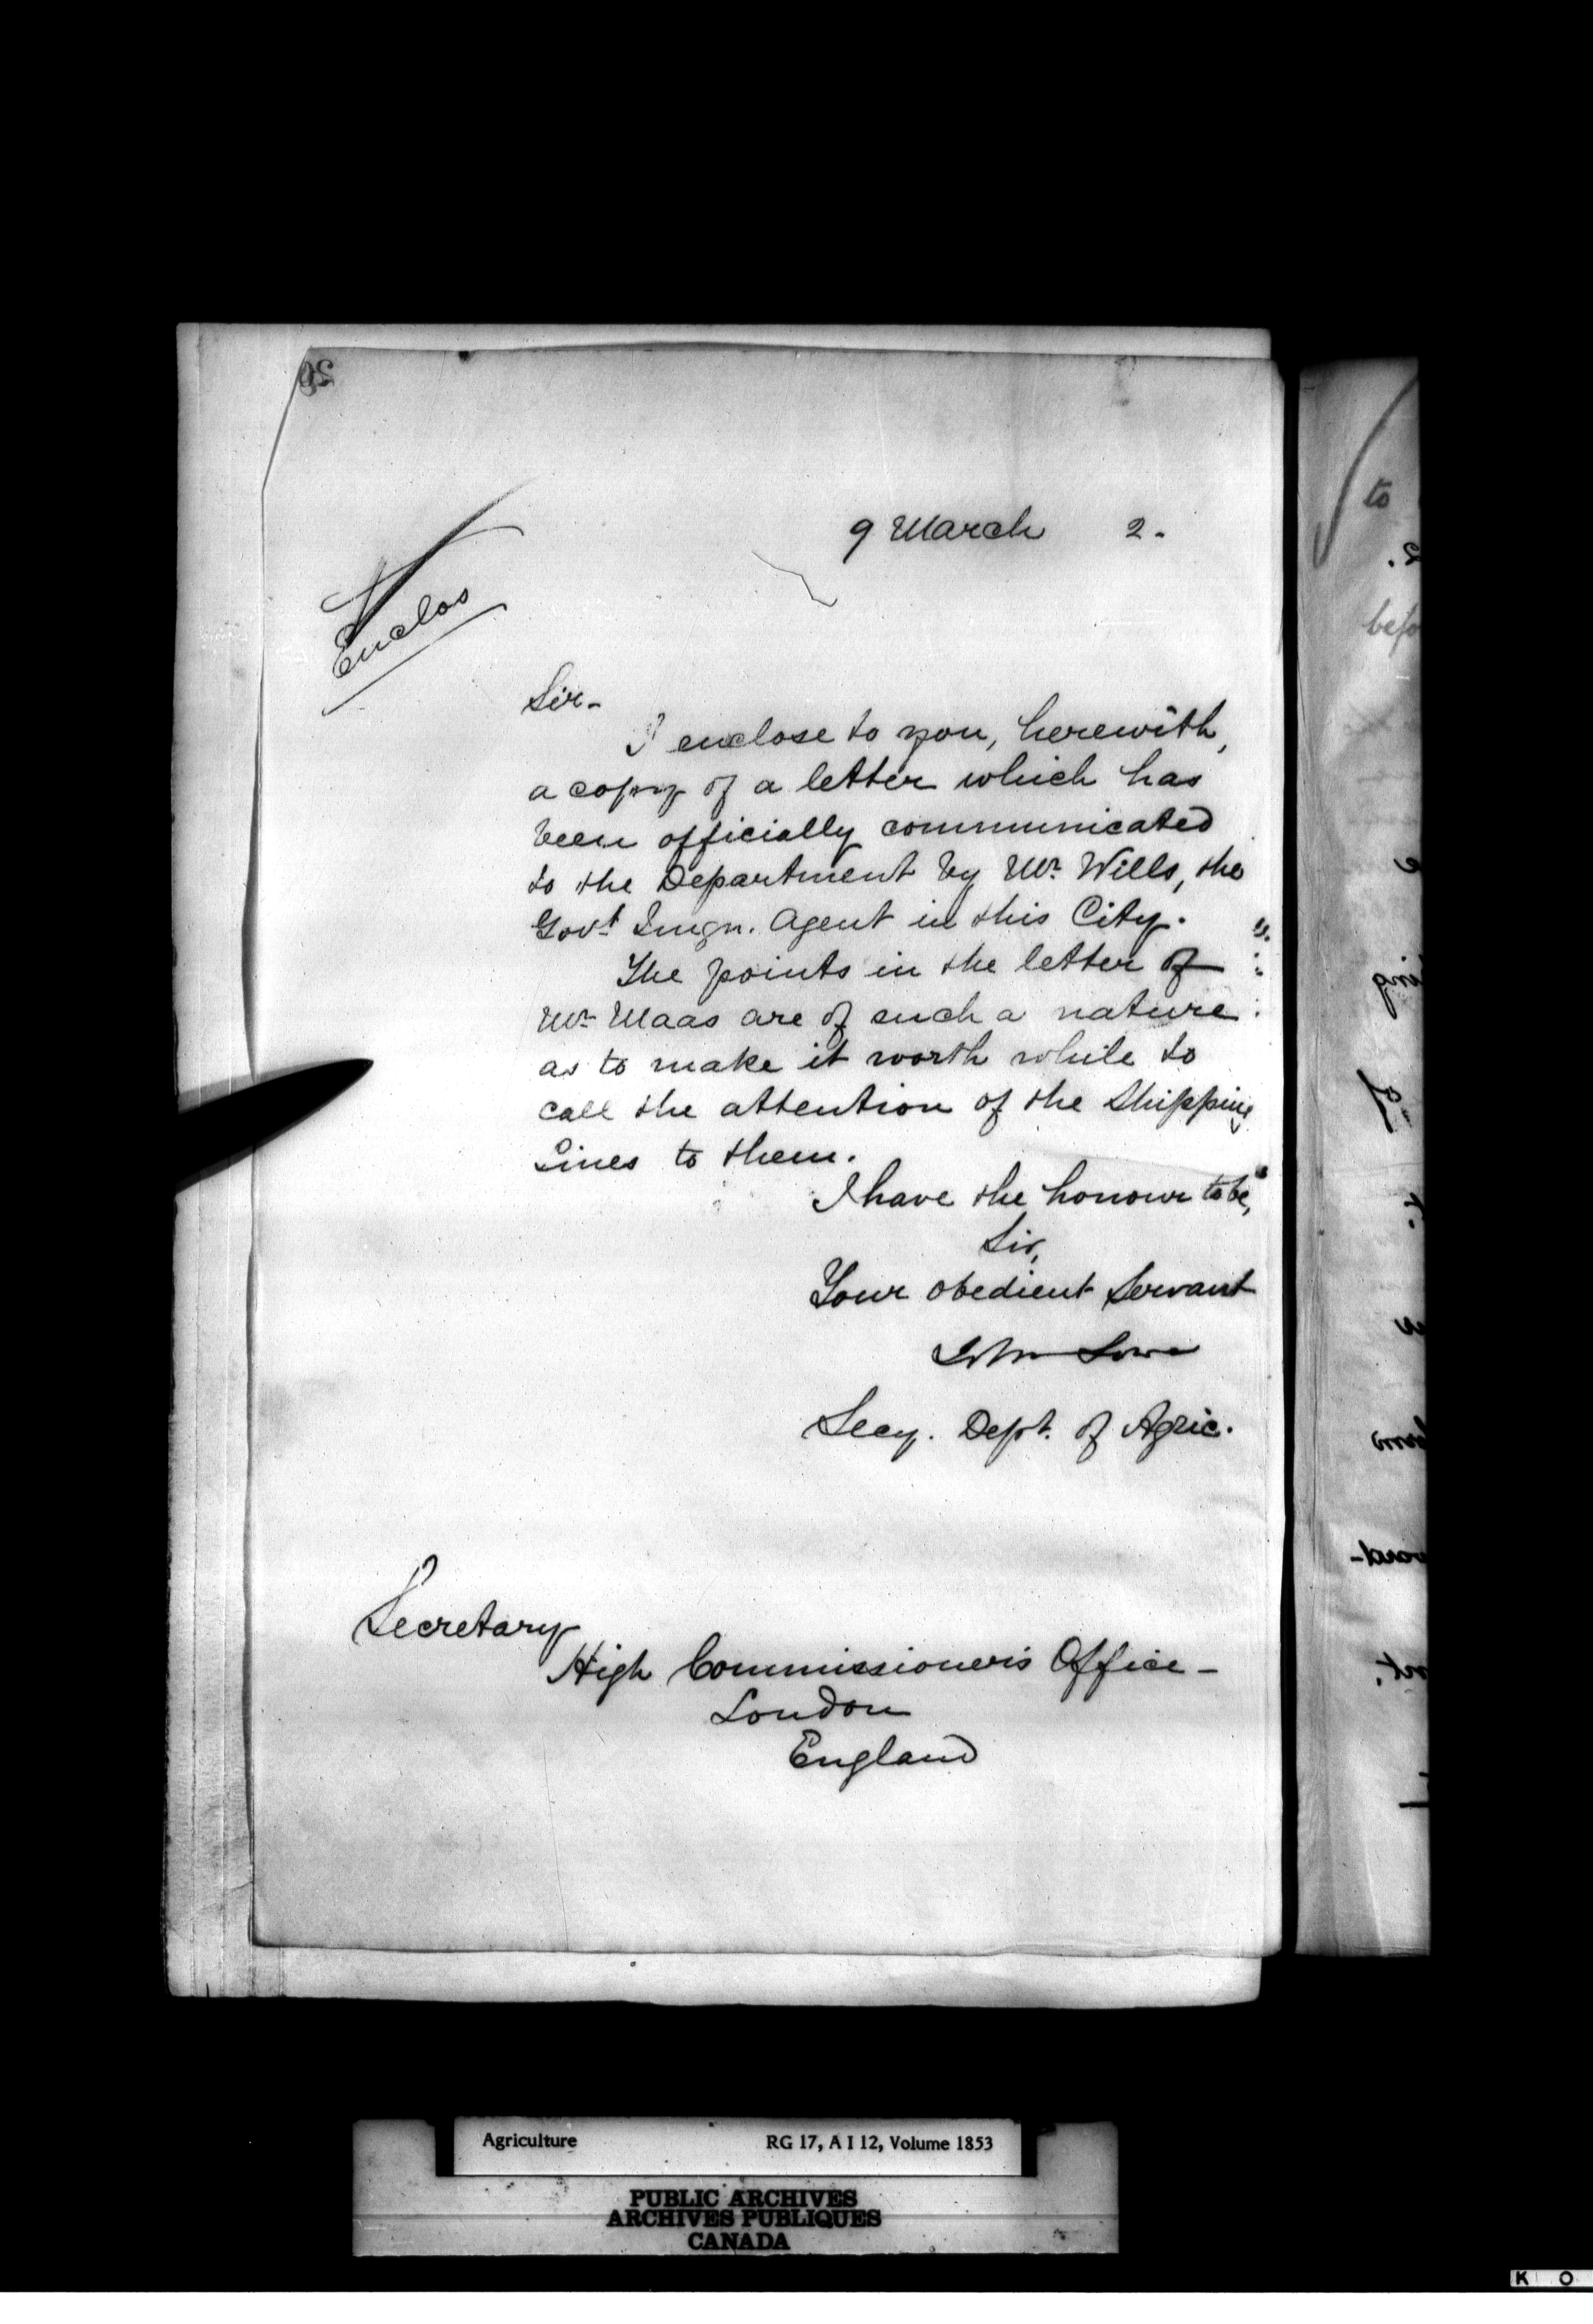 20
9 March 2.
Enclos
Sir-
I enclose to you, herewith,
a copy of a letter which has
been officially communicated
to the Department by Mr. Wills, the
Govt. Imgn. Agent in this City.
The points in the letter of
Mr. Maas are of such a nature
as to make it worth while to
call the attention of the Shipping
Lines to them.
I have the honour to be,
Sir,
Your obedient Servant
John Lowe
Secy. Dept. of Agric.
Secretary
High Commissioner's Office -
London
England
to
befo
Agriculture RG 17, A I 12, Volume 1853
PUBLIC ARCHIVES
ARCHIVES PUBLIQUES
CANADA
K O